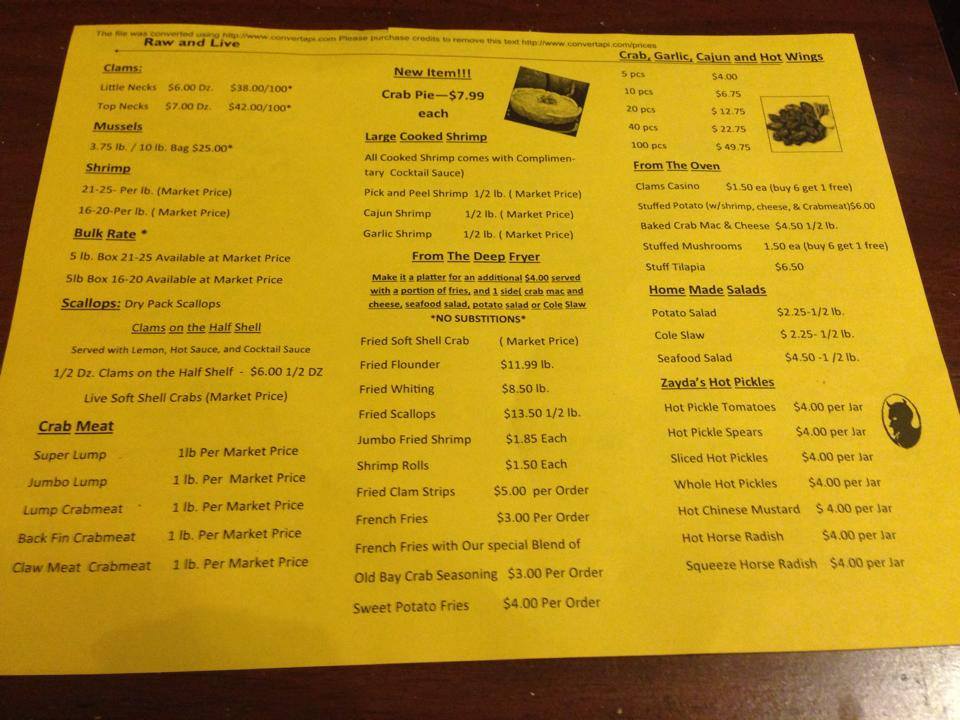 The file was converted using http://www.convertapi.com Please purchase credits to remove this text http://www.convertapi.com/prices
Raw and Live
Clams:
Little Necks $6.00 Dz. $38.00/100*
Top Necks $7.00 Dz. $42.00/100*
Mussels
3.75 lb. / 10 lb. Bag $25.00*
Shrimp
21-25- Per lb. (Market Price)
16-20-Per lb. ( Market Price)
Bulk Rate *
5 lb. Box 21-25 Available at Market Price
5lb Box 16-20 Available at Market Price
Scallops: Dry Pack Scallops
Clams on the Half Shell
Served with Lemon, Hot Sauce, and Cocktail Sauce
1/2 Dz. Clams on the Half Shelf - $6.00 1/2 DZ
Live Soft Shell Crabs (Market Price)
Crab Meat
Super Lump 1lb Per Market Price
Jumbo Lump 1 lb. Per Market Price
Lump Crabmeat 1 lb. Per Market Price
Back Fin Crabmeat 1 lb. Per Market Price
Claw Meat Crabmeat 1 lb. Per Market Price
New Item!!!
Crab Pie—$7.99
each
Large Cooked Shrimp
All Cooked Shrimp comes with Complimen-
tary Cocktail Sauce)
Pick and Peel Shrimp 1/2 lb. ( Market Price)
Cajun Shrimp 1/2 lb. ( Market Price)
Garlic Shrimp 1/2 lb. ( Market Price)
From The Deep Fryer
Make it a platter for an additional $4.00 served
with a portion of fries, and 1 side( crab mac and
cheese, seafood salad, potato salad or Cole Slaw
*NO SUBSTITIONS*
Fried Soft Shell Crab ( Market Price)
Fried Flounder $11.99 lb.
Fried Whiting $8.50 lb.
Fried Scallops $13.50 1/2 lb.
Jumbo Fried Shrimp $1.85 Each
Shrimp Rolls $1.50 Each
Fried Clam Strips $5.00 per Order
French Fries $3.00 Per Order
French Fries with Our special Blend of
Old Bay Crab Seasoning $3.00 Per Order
Sweet Potato Fries $4.00 Per Order
Crab, Garlic, Cajun and Hot Wings
5 pcs $4.00
10 pcs $6.75
20 pcs $ 12.75
40 pcs $ 22.75
100 pcs $ 49.75
From The Oven
Clams Casino $1.50 ea (buy 6 get 1 free)
Stuffed Potato (w/shrimp, cheese, & Crabmeat)$6.00
Baked Crab Mac & Cheese $4.50 1/2 lb.
Stuffed Mushrooms 1.50 ea (buy 6 get 1 free)
Stuff Tilapia $6.50
Home Made Salads
Potato Salad $2.25-1/2 lb.
Cole Slaw $ 2.25- 1/2 lb.
Seafood Salad $4.50 -1 /2 lb.
Zayda's Hot Pickles
Hot Pickle Tomatoes $4.00 per Jar
Hot Pickle Spears $4.00 per Jar
Sliced Hot Pickles $4.00 per Jar
Whole Hot Pickles $4.00 per Jar
Hot Chinese Mustard $ 4.00 per Jar
Hot Horse Radish $4.00 per Jar
Squeeze Horse Radish $4.00 per Jar